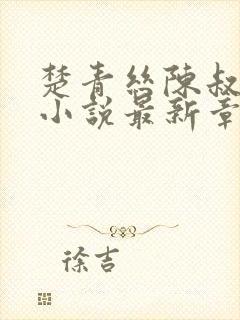 楚青丝陳叔
小說最新章
徐吉